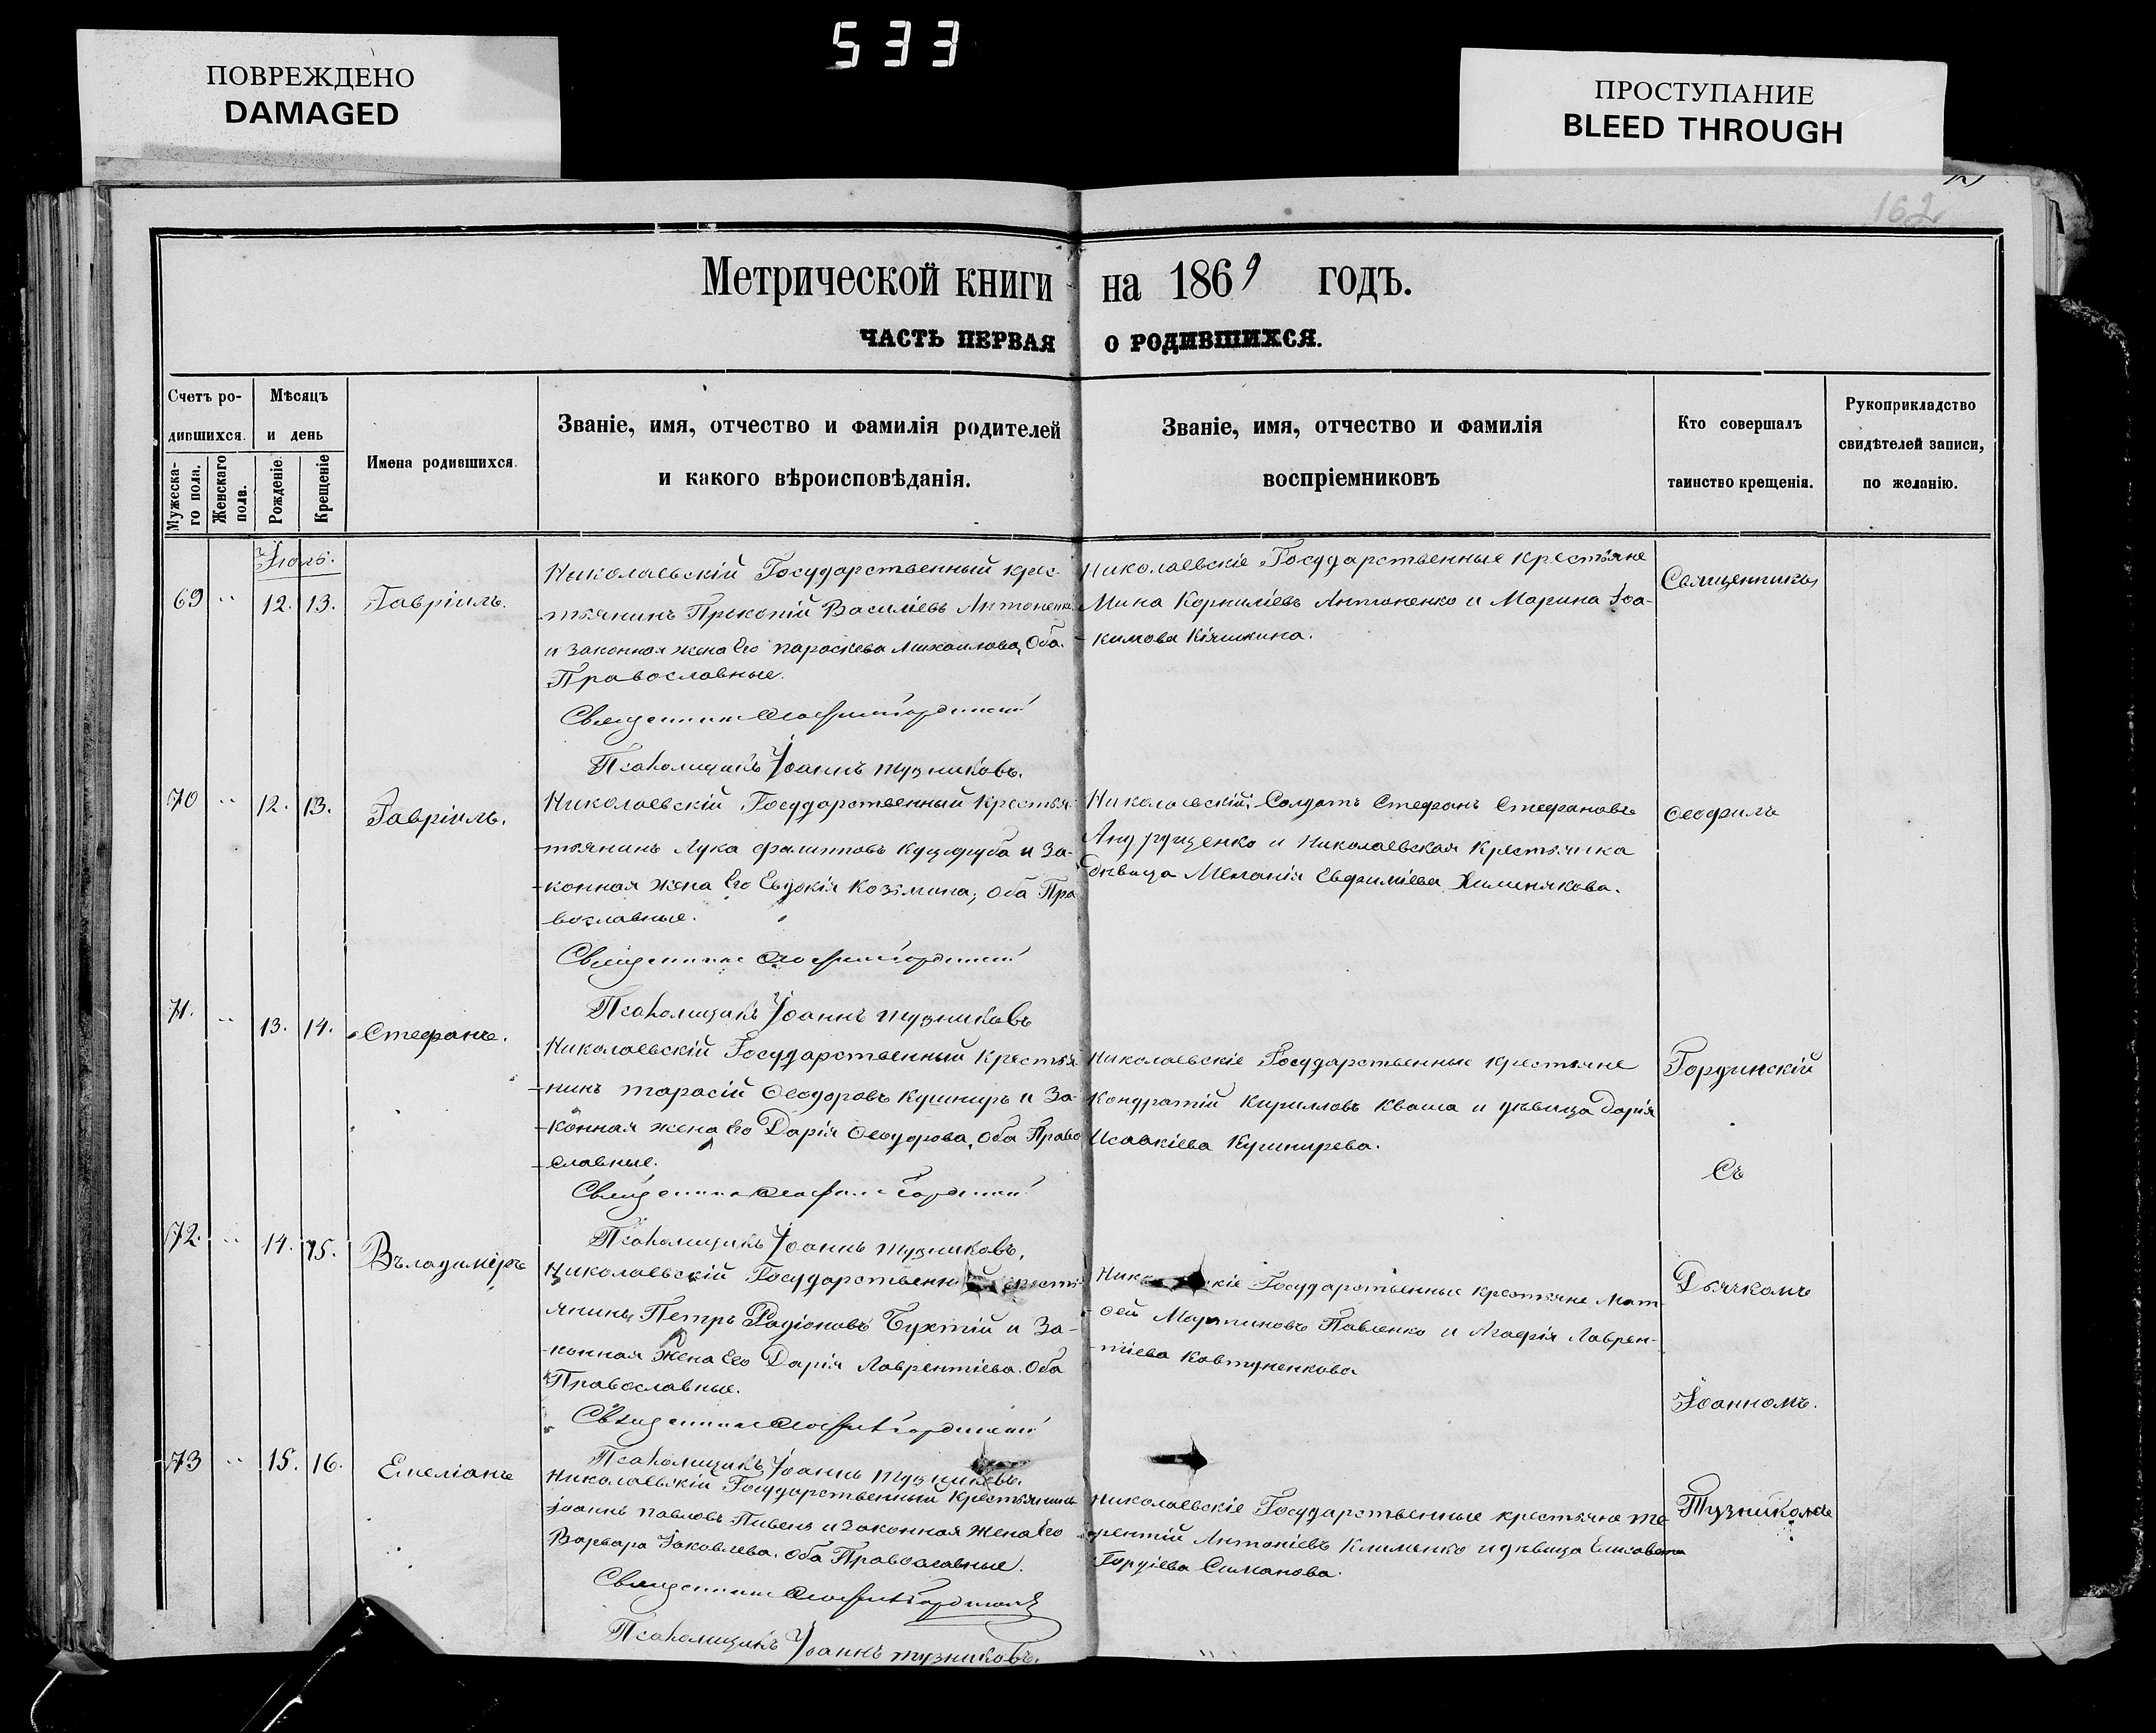 533
ПОВРЕЖДЕНО
DAMAGED
ПРОСТУПАНИЕ
BLEED THROUGH
162
Метрической книги на 1869 годъ.
ЧАСТЬ ПЕРВАЯ О РОДИВШИХСЯ.
Счетъ ро-
дившихся.
Мужеска-
го пола.
Женскаго
пола.
Мѣсяцъ
и день
Рожденіе.
Крещеніе
Имена родившихся.
Званіе, имя, отчество и фамилія родителей
и какого вѣроисповѣданія.
Званіе, имя, отчество и фамилія
воспріемниковъ
Кто совершалъ
таинство крещенія.
Рукоприкладство
свидѣтелей записи,
по желанію.
Іюль.
69 " 12. 13. Гавріилъ.
Николаевскій Государственный крес-
тьянинъ Прокопій Василіевъ Антоненко
и законная жена Его параскева Михаилова, Оба
Православные.
Священникъ Ѳеофилъ Гординскій
Псаломщикъ Іоаннъ Тузниковъ.
Николаевскіе Государственные крестьяне
Мина Корниліевъ Антоненко и Марина Іоа-
кимова
Священникъ
70 " 12. 13. Гавріилъ.
Николаевскій Государственный Крестья-
тьянинъ Лука Филипповъ и За-
конная жена Его Евдокія Козьмина; Оба Пра
вославные.
Священникъ Ѳеофилъ Гординскій
Псаломщикъ Іоаннъ Тузниковъ
Николаевскій Солдатъ Стефанъ Стефановъ
Андрущенко и Николаевская Крестьянка
дѣвица Меланія Евфиміева
Ѳеофилъ
71. " 13. 14. Стефанъ.
Николаевскій Государственный Крестья
-нинъ Тарасій Ѳеодоровъ Кушниръ и За-
-конная жена Его Дарія Ѳеодорова, Оба Право
-славные.
Священникъ Ѳеофилъ Гординскій
Псаломщикъ Іоаннъ Тузниковъ.
Николаевскіе Государственные крестьяне
Кондратій Кирилловъ Кваша и дѣвица Дарія
Исаакіева Кушнирева.
Гординскій
Съ
72. " 14. 15. Въладиміръ
Николаевскій Государственный крестьянинъ Петръ Родіоновъ Бухтій и За-
-конная Жена Его Дарія Лаврентіева. Оба
Православные.
Священникъ Ѳеофилъ Гординскій
Псаломщикъ Іоаннъ Тузниковъ.
Николаевскіе Государственные крестьяне Мат-
ѳей Мартиновъ Павленко и Агафія Лаврен-
-тіева Ковтуненкова
Дьячкомъ
Іоанномъ.
73 " 15. 16. Емеліанъ
Николаевскій Государственный Крестьянинъ
Іоаннъ Павловъ Пивень и Законная Жена Его
Варвара Іаковлева. Оба Православные.
Священникъ Ѳеофилъ Гординскій
Псаломщикъ Іоаннъ Тузниковъ.
Николаевскіе Государственные крестьяне Те
рентій Антоніевъ Клименко и дѣвица Елисавета
Гордіева Симанова.
Тузникомъ